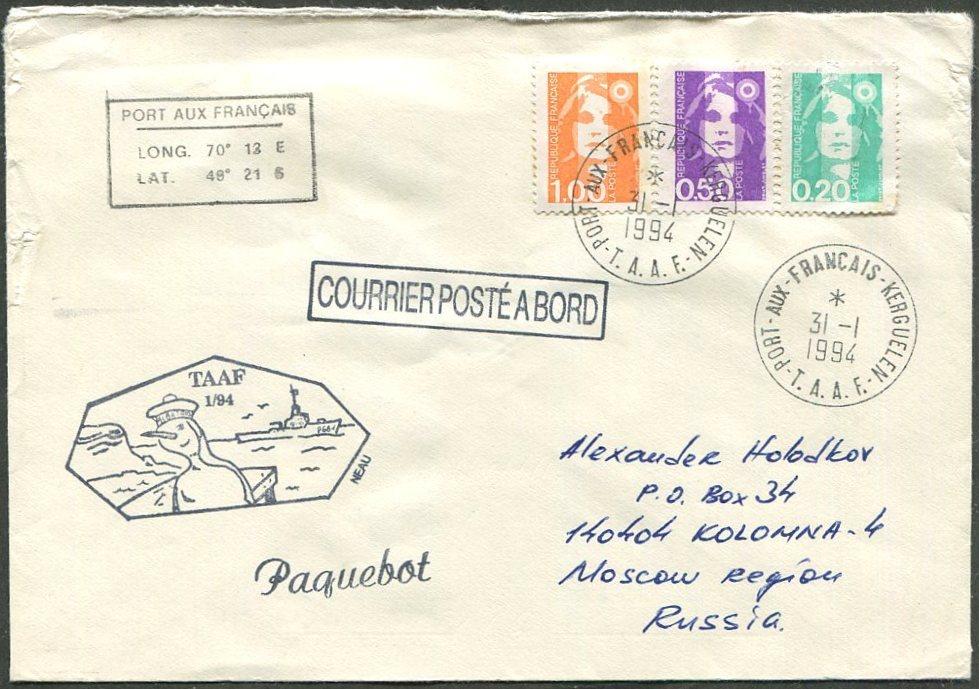 PORT AUX FRANÇAIS
LONG. 70° 13 E
LAT. 49° 21 S
REPUBLIQUE FRANÇAISE
1.00
LA POSTE
REPUBLIQUE FRANÇAISE
0.50
LA POSTE
REPUBLIQUE FRANÇAISE
0.20
LA POSTE
PORT-AUX-FRANÇAIS-KERGUELEN
*
31 -1
1994
-T. A. A. F.-
PORT-AUX-FRANÇAIS-KERGUELEN
*
31 -1
1994
-T. A. A. F.-
COURRIER POSTÉ A BORD
TAAF
1/94
ALBATROS
P681
NEAU
Paquebot
Alexander Holodkov
P.O. Box 34
140404 KOLOMNA-4
Moscow region
Russia.